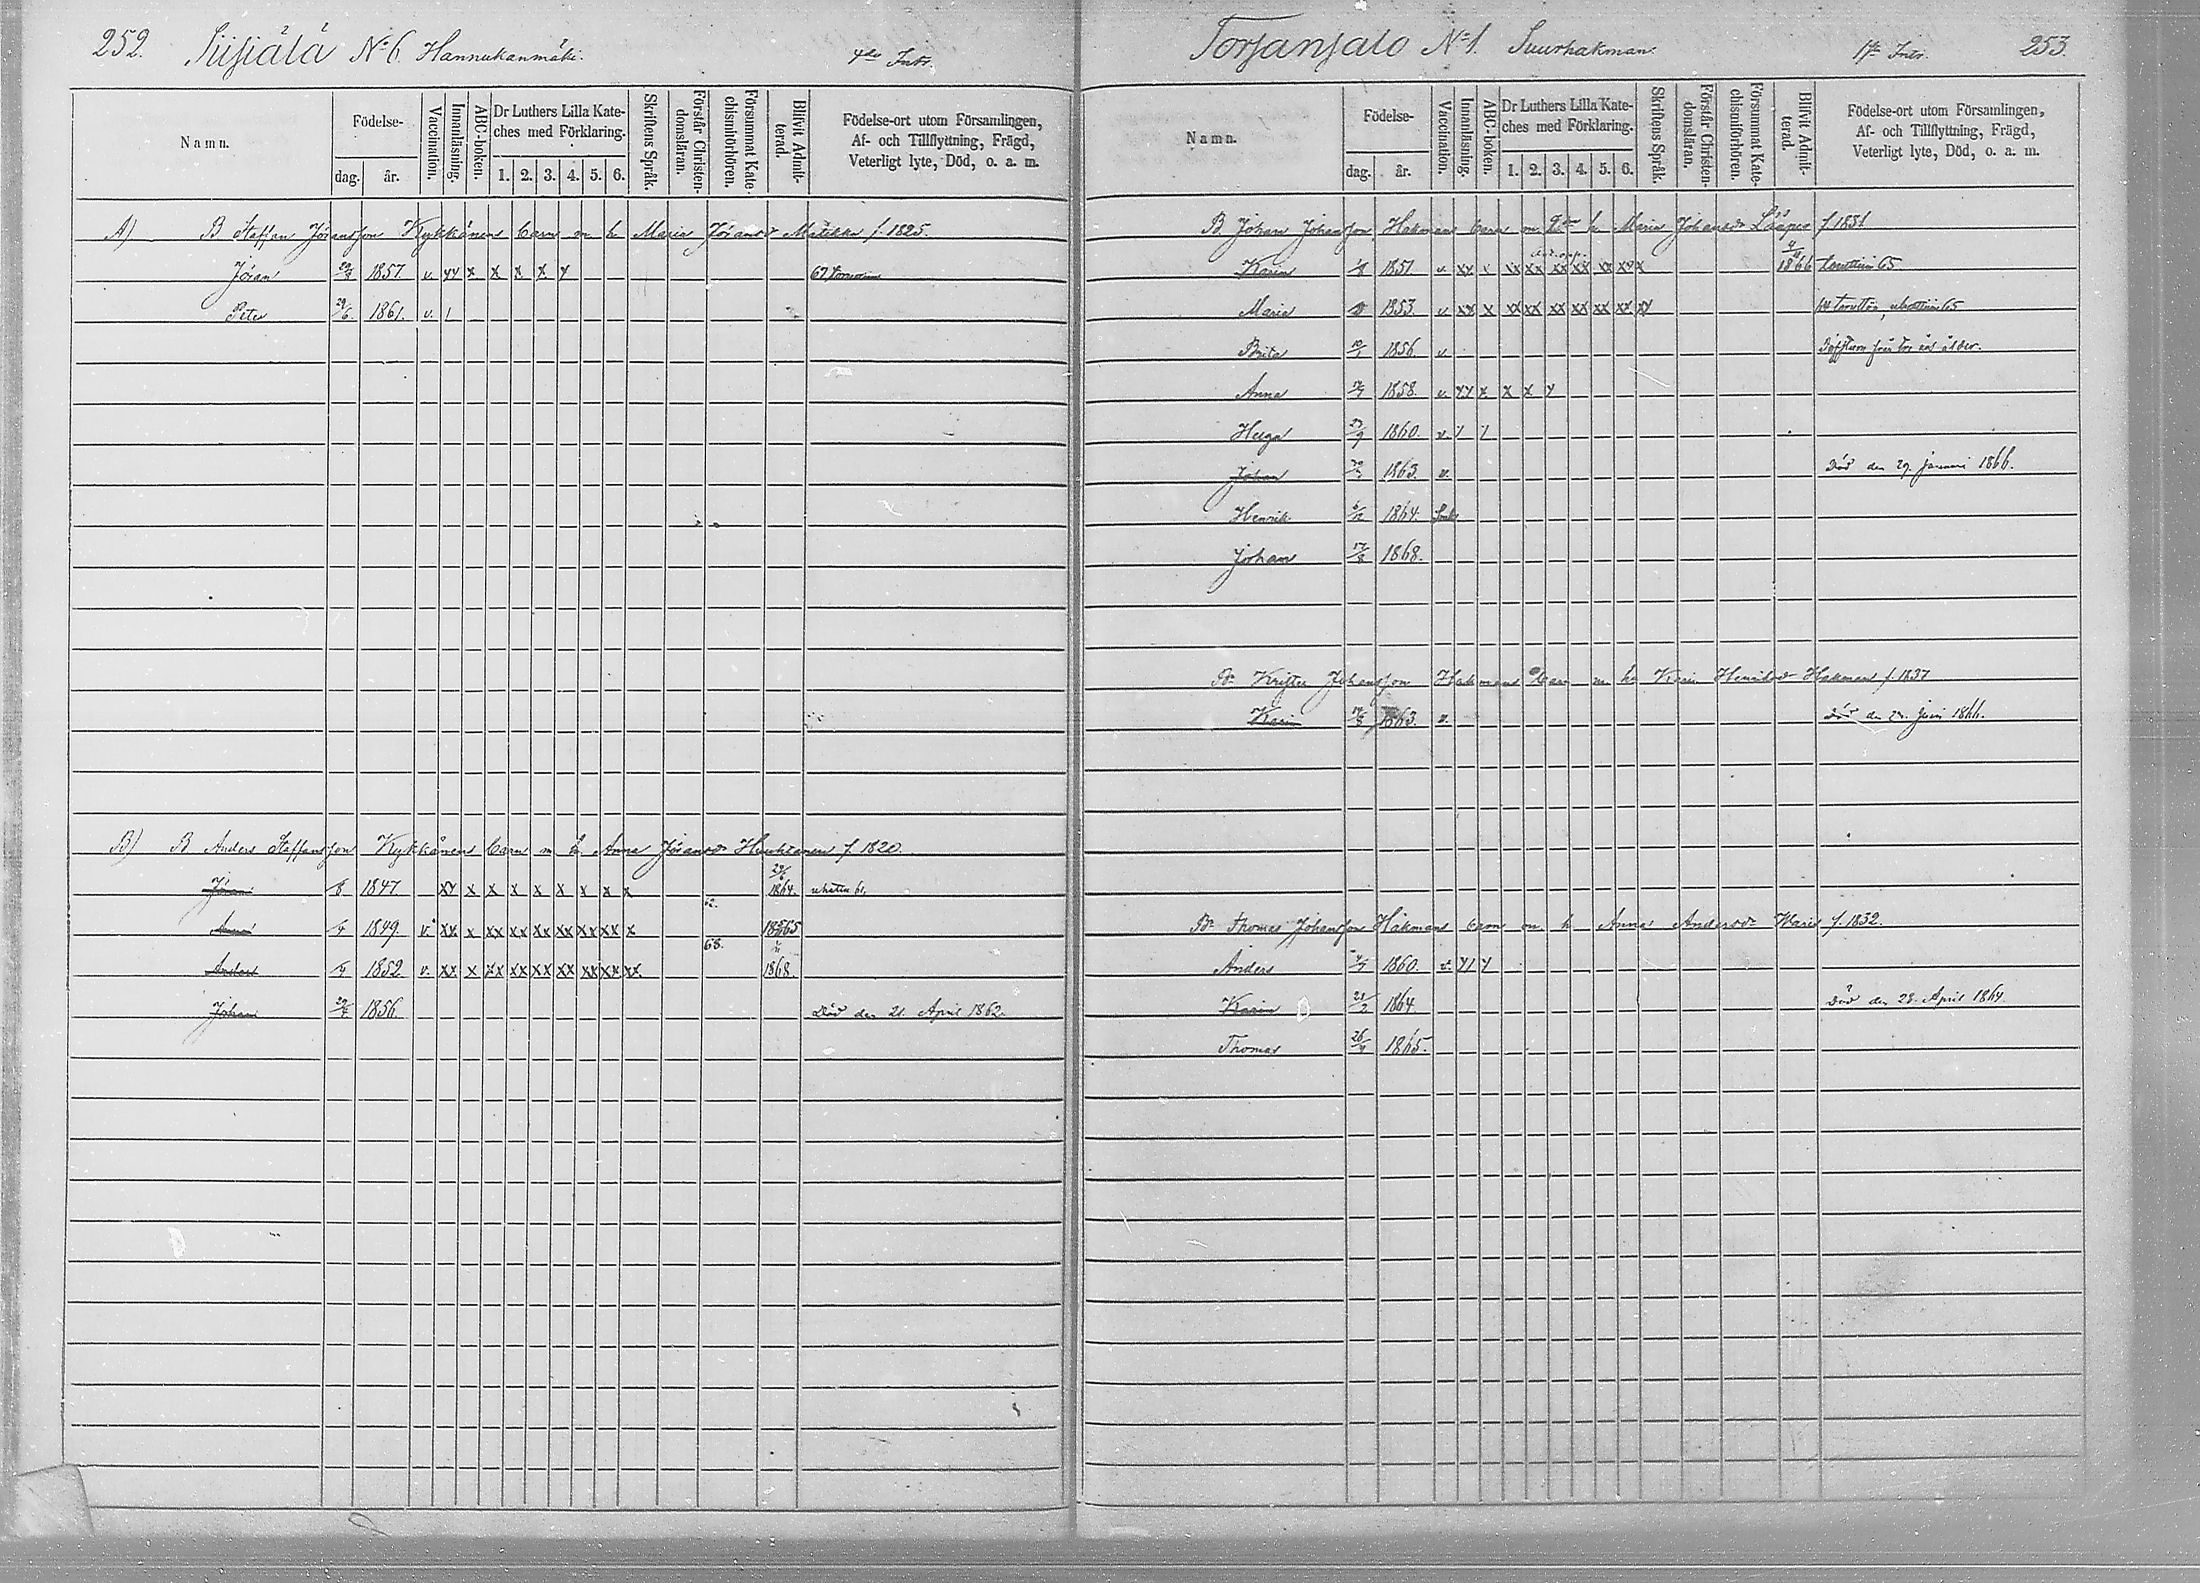 252. Siisiälä No 6. Hannukanmäki.
Namn.
Födelse-
dag. år.
Vaccination.
Innanläsning.
ABC-boken.
Dr Luthers Lilla Kate-
ches med Förklaring.
1. 2. 3. 4. 5. 6.
Skriftens Språk.
Förstår Christen-
domsläran.
Försummat Kate-
chismiförhören.
Blifvit Admit-
terad.
Födelse-ort utom Församlingen,
Af- och Tillflyttning, Frägd,
Veterligt lyte, Död, o. a. m.
A) B Staffan Jöransson Kykkänens barn m h Maria Jöransdr f. 1825.
Jöran 1857. v. xy x x x x y 67
Peter 29/6. 1861. v. /
B) B Anders Staffansson Kykkänens barn m h. Anna Jöransdr f. 1820.
Jöran 1847 xy x x x x x x x x 1864.
62.
1849. v. xx x xx xx xx xx xx xx x 1865
68.
Anders 1852 v. xx x xx xx xx xx xx xx xx 1868
Johan 1856. Död den 21. April 1862.
Torsansalo No 1. Suurhakman. 253.
Namn.
Födelse-
dag. år.
Vaccination.
Innanläsning.
ABC-boken.
Dr Luthers Lilla Kate-
ches med Förklaring.
1. 2. 3. 4. 5. 6.
Skriftens Språk.
Förstår Christen-
domsläran.
Försummat Kate-
chismiförhören.
Blifvit Admit-
terad.
Födelse-ort utom Församlingen,
Af- och Tillflyttning, Frägd,
Veterligt lyte, Död, o. a. m.
B. Johan Johansson Hakmans barn m h. Maria Johansdr f. 1831
Karin 1851 v xx x xx xx xx xx xx xx x 1866 65.
Maria 1853. v xx x xx xx xx xx xx xx xy 65
Brita 1856. v från
Anna 1858. v. yy x x x y
Helga 1860. v. / /
Johan 1863. v. Död den 29. januari 1866.
Henrik 1864.
Johan 1868.
Br. Krister Johansson Hakmans barn m h Karin Henriksdr Hakman f. 1837
Karin 1863. v. Död den juni 1866.
Br. Thomas Johansson Hakmans barn m h Anna Andersdr f. 1832.
Anders 1860. v. y/ y
Karin 21/2 1864. Död den 28. April 1864.
Thomas 1865.